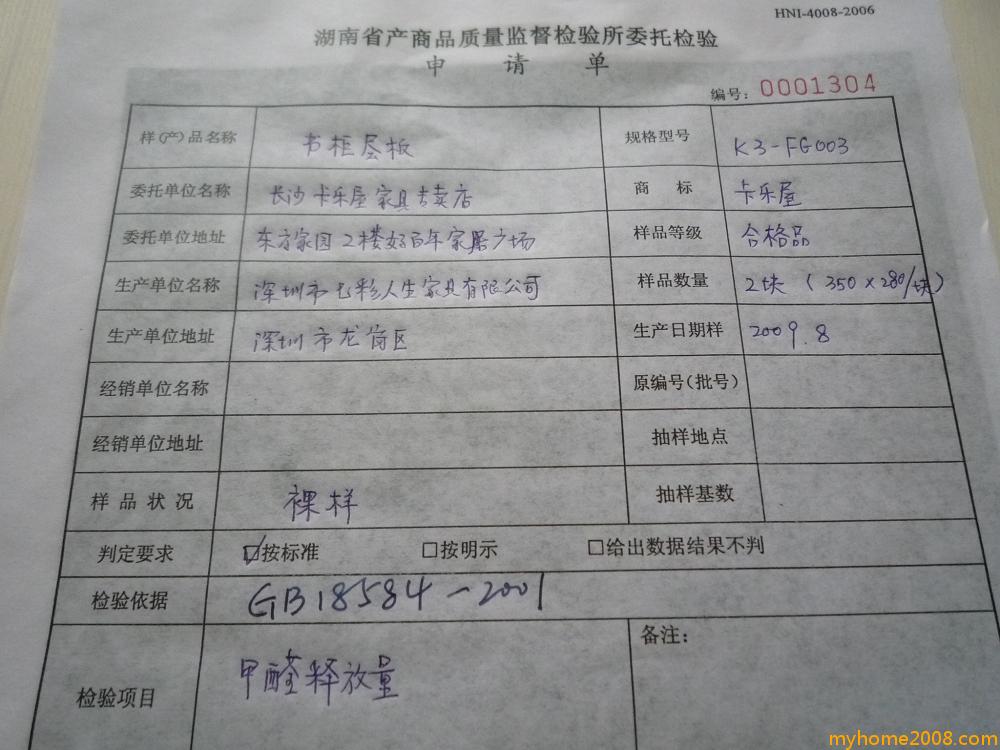 HNI-4008-2006
湖南省产商品质量监督检验所委托检验
申 请 单
编号：0001304
样(产)品名称 书柜层板 规格型号 K3-FG003
委托单位名称 长沙卡乐屋家具专卖店 商 标 卡乐屋
委托单位地址 东方家园2楼好百年家居广场 样品等级 合格品
生产单位名称 深圳市七彩人生家具有限公司 样品数量 2块（350×280/块）
生产单位地址 深圳市龙岗区 生产日期样 2009.8
经销单位名称 原编号(批号)
经销单位地址 抽样地点
样品状况 裸样 抽样基数
判定要求 ☑按标准 □按明示 □给出数据结果不判
检验依据 GB18584-2001
检验项目 甲醛释放量 备注：
myhome2008.com